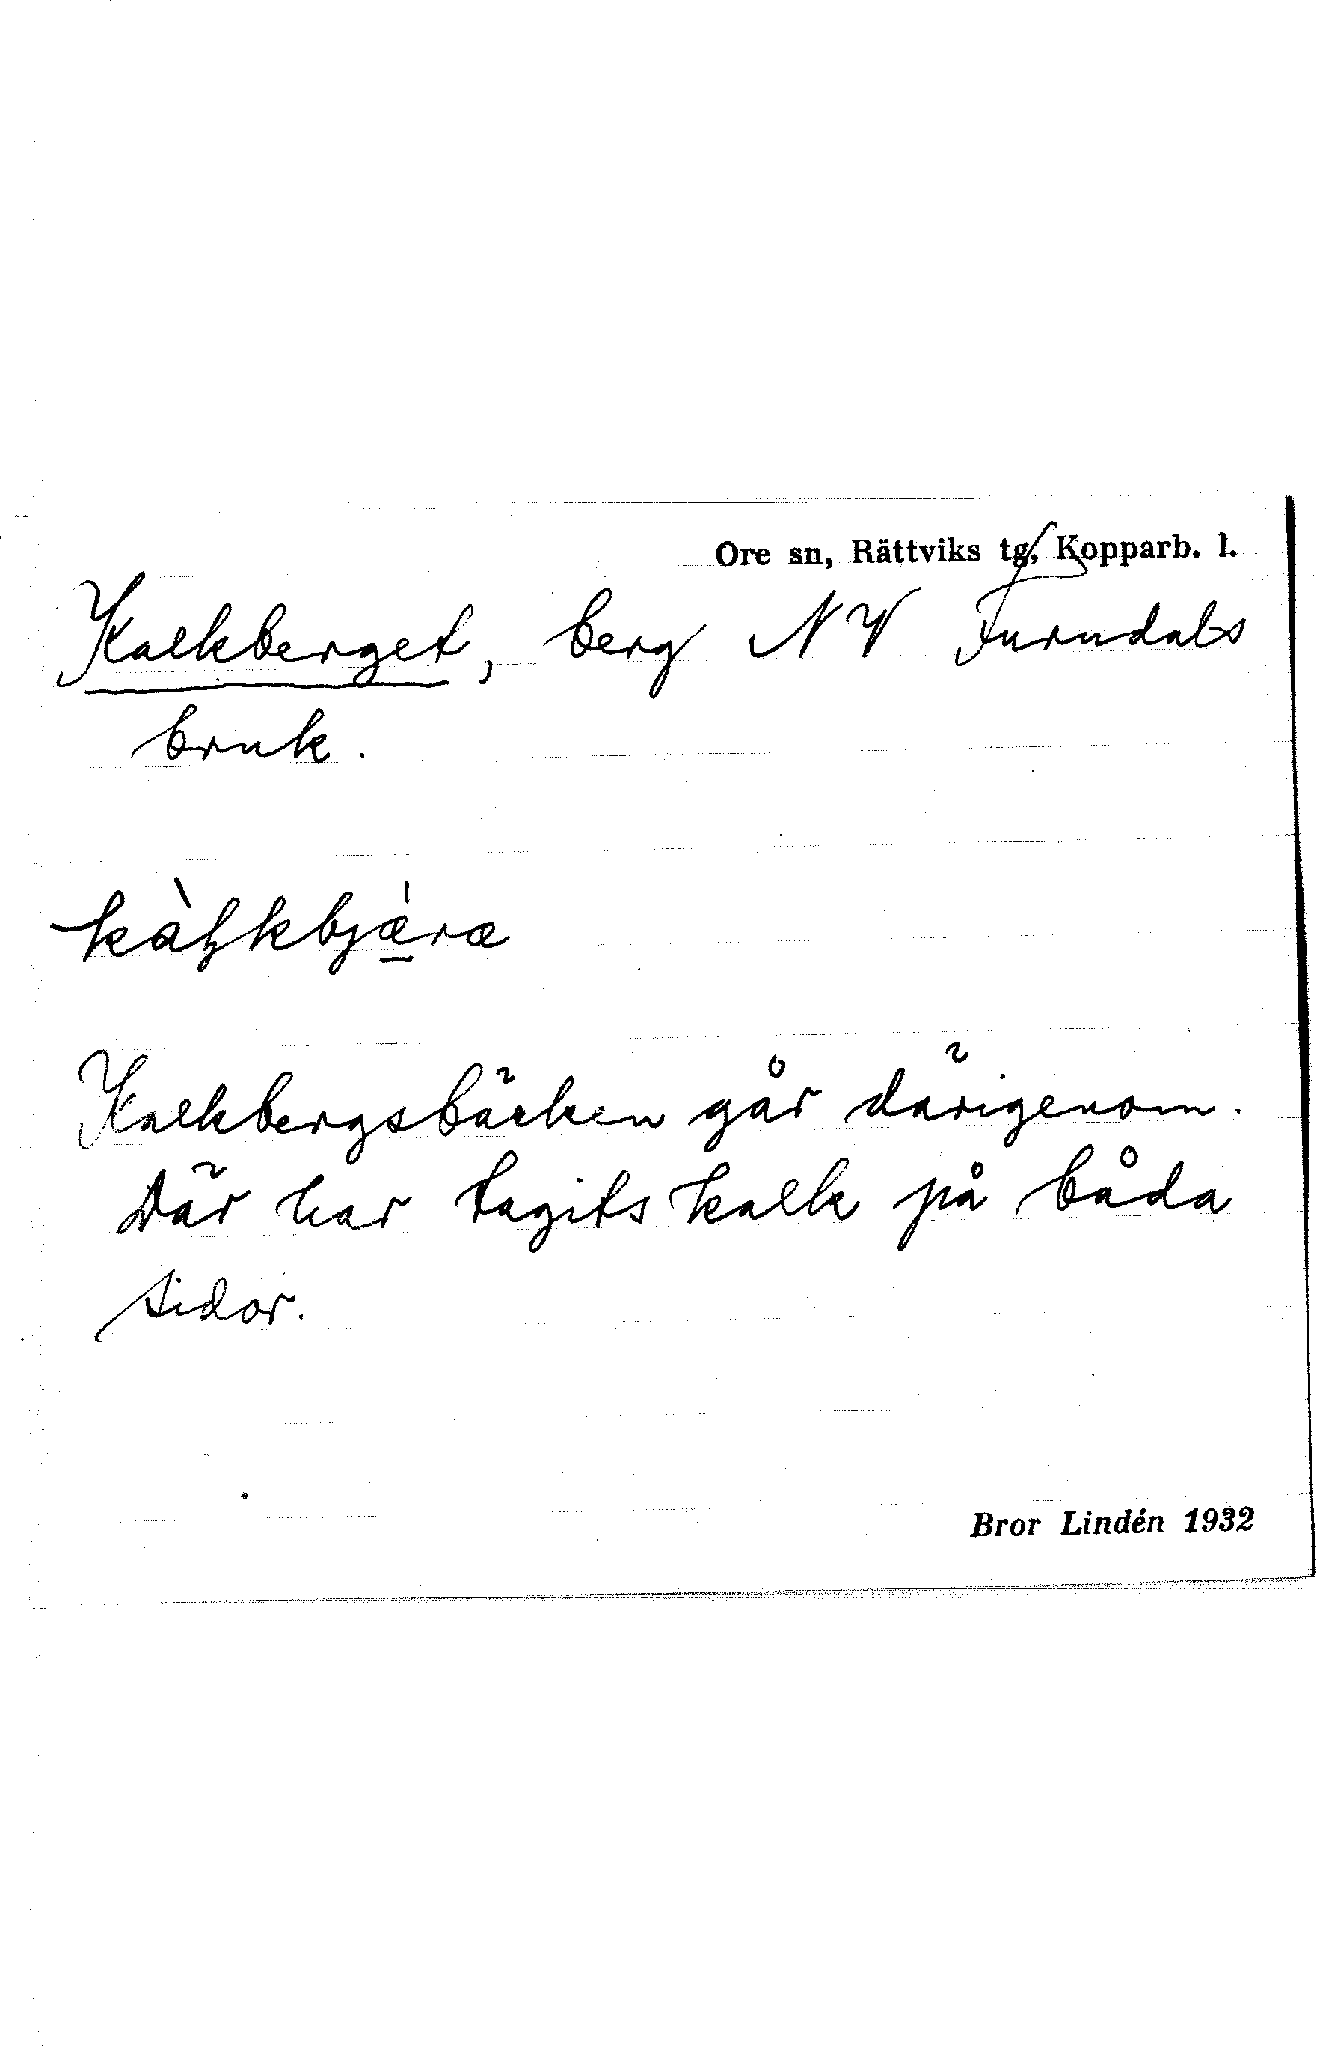 Ore sn, Rättviks tg, Kopparb. l.
Kalkberget, berg NV Furudals
bruk.
kàḷkbjæ̱̀ræ
Kalkbergsbäcken går därigenom.
Där har tagits kalk på båda
sidor.
Bror Lindén 1932